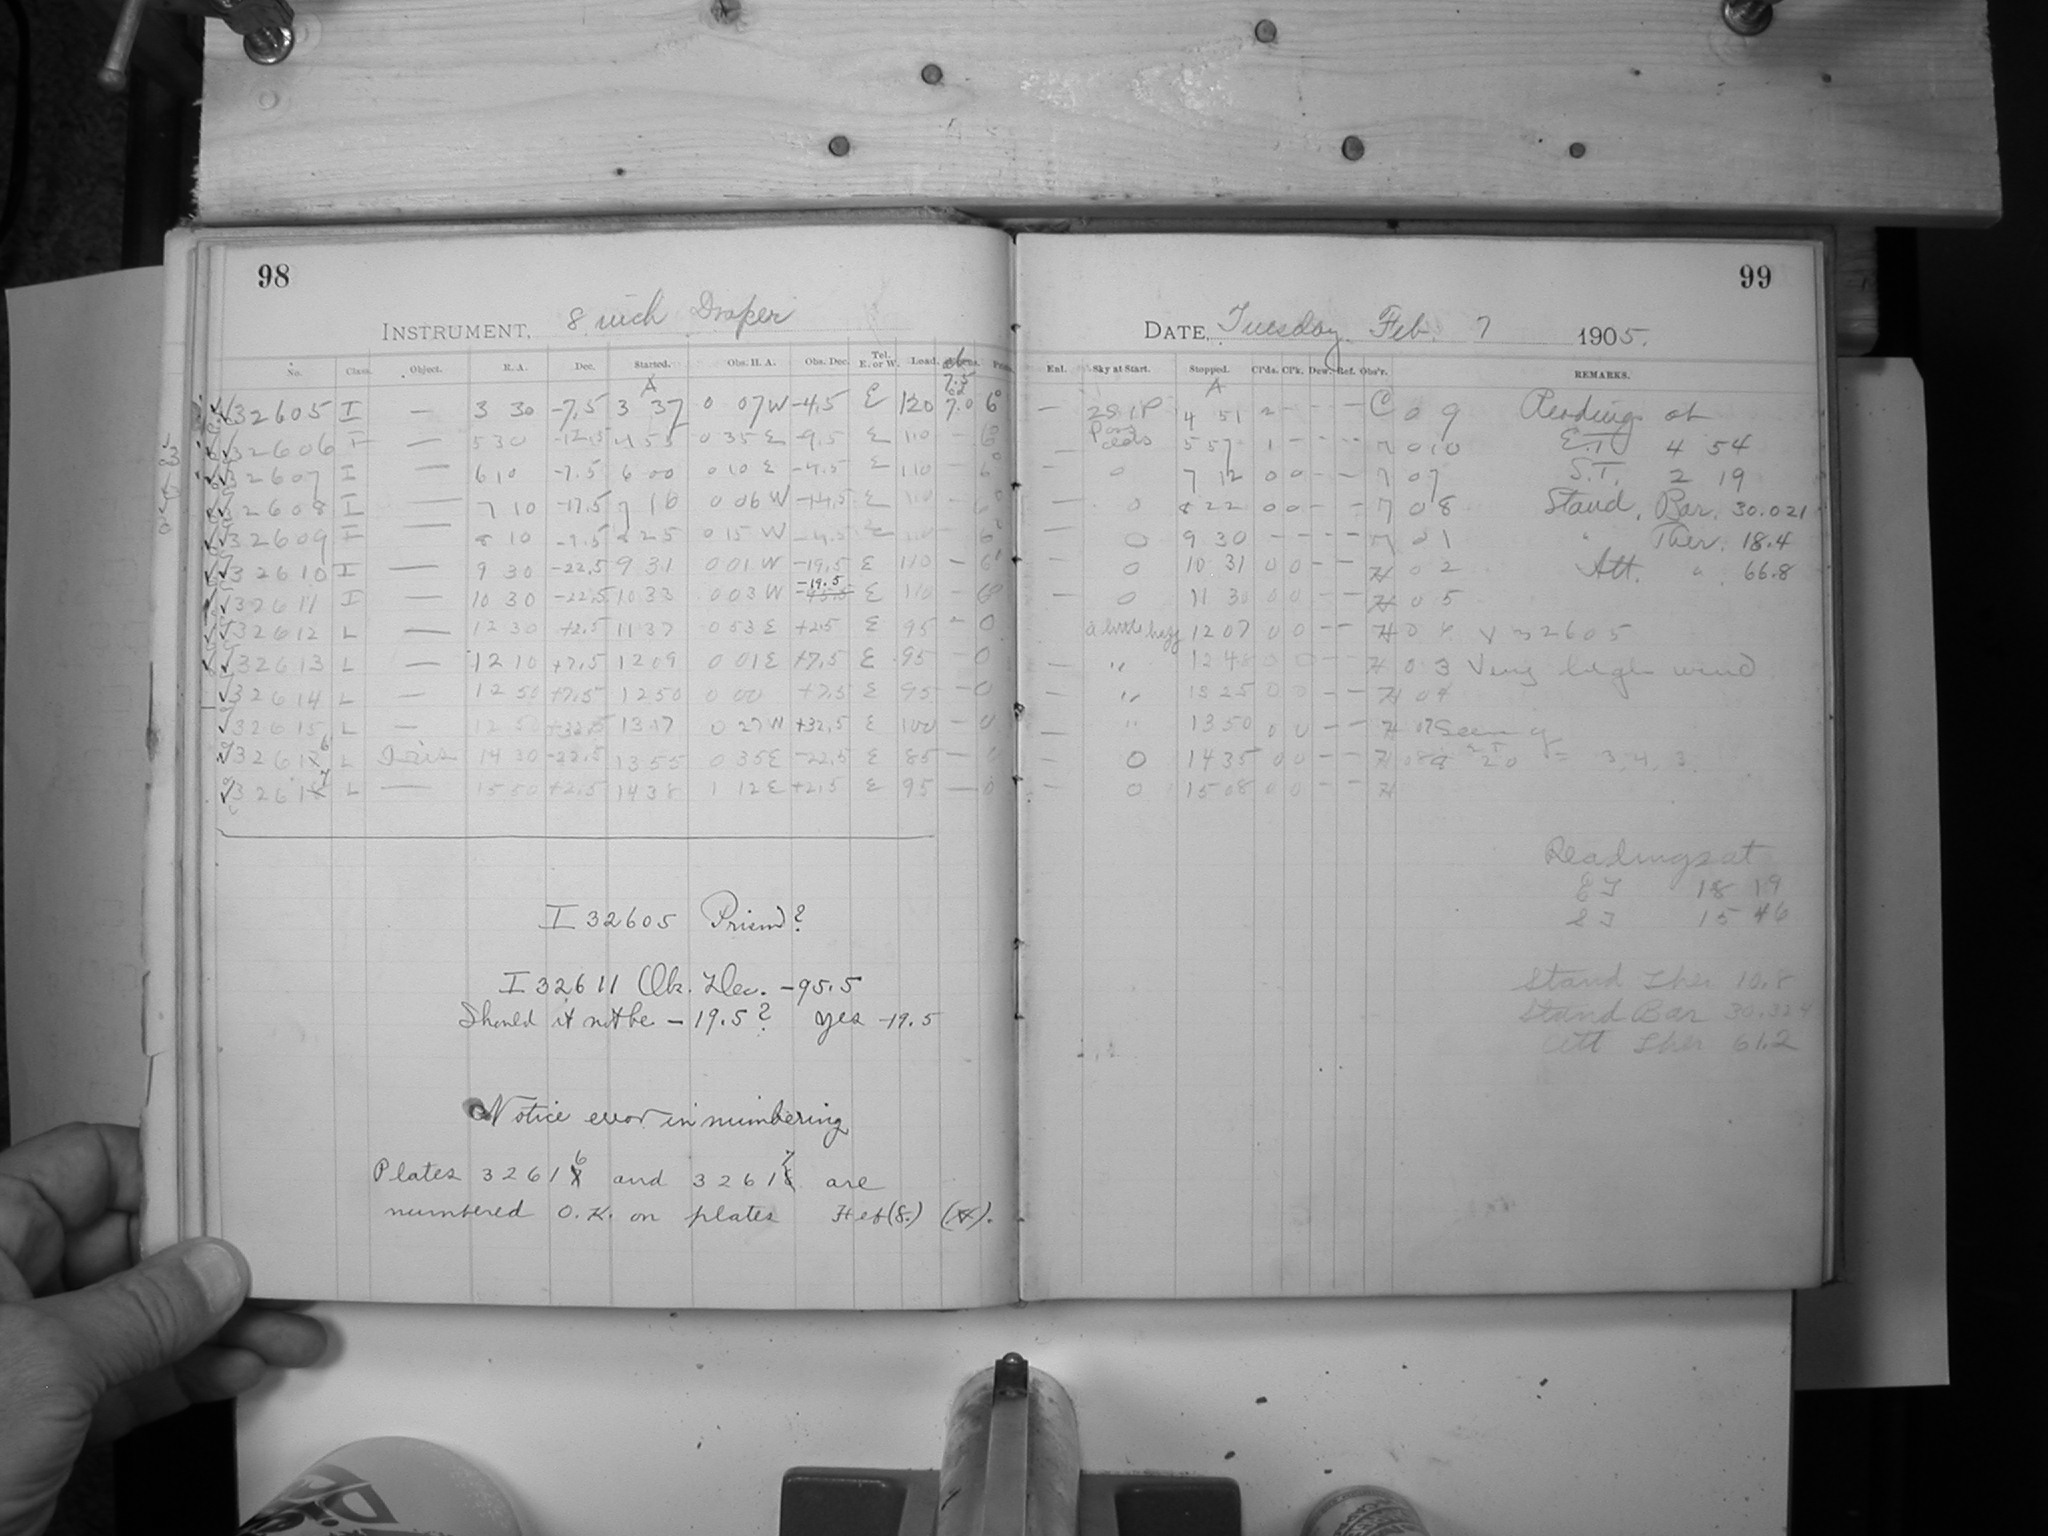 98
INSTRUMENT, 8 inch Draper
No. Class. Object. R. A. Dec. Started. Obs. H. A. Obs. Dec. Tel. E. or W. Load.
A
32605 I — 3 30 -7.5 3 37 0 07 W -4.5 E 120 7.0 6°
32606 I — 5 30 -12.5 4 55 0 35 E -9.5 E 110 —
32607 I — 6 10 -7.5 6 00 0 10 E -4.5 E 110 —
32608 I — 7 10 -17.5 7 16 0 06 W -14.5 E 110
32609 I — 8 10 -7.5 8 25 0 15 W -4.5 E 110
32610 I — 9 30 -22.5 9 31 0 01 W -19.5 E 110 —
32611 I — 10 30 -22.5 10 33 0 03 W -19.5 E 110 —
32612 L — 12 30 +2.5 11 37 0 53 E +2.5 E 95 - 0
32613 L — 12 10 +7.5 12 09 0 01 E +7.5 E 95 - 0
32614 L — 12 50 +7.5 12 50 0 00 +7.5 E 95 - 0
32615 L — 12 50 +32.5 13 17 0 27 W +32.5 E 100 - 0
32616 L Iris 14 30 -22.5 13 55 0 35 E -22.5 E 85 —
32617 L — 15 50 +2.5 14 38 1 12 E +2.5 E 95 — 0
I 32605 Prism?
I 32611 Ob. Dec. -95.5
Should it not be -19.5? yes -19.5
Notice error in numbering
Plates 32616 and 32617 are
numbered O.K. on plates
99
DATE, Tuesday Feb. 7 1905.
Enl. Sky at Start. Stopped. Cl'ds. Cl'k. Dew. Ref. Obs'r. REMARKS.
A
4 51 2 - - - C 09 Readings at
5 57 1 - - - 010 E.T. 4 54
0 7 12 0 0 - - 07 S.T. 2 19
0 8 22 0 0 - - 08 Stand. Bar. 30.021
0 9 30 - - - - 01 " Ther. 18.4
0 10 31 0 0 - - H 02 Att. " 66.8
0 11 30 0 0 - - H 05
a little hazy 12 07 0 0 - - H 04 32605
" 12 48 0 0 - - H 03 Very high wind
" 13 25 0 0 - - H 04
" 13 50 0 0 - - H 07 Seeing
0 14 35 0 0 - - H 08 = 3, 4, 3.
0 15 08 0 0 - - H
Readings at
E T 18 19
S T 15 46
Stand Ther 10.8
Stand Bar 30.324
Att Ther 61.2